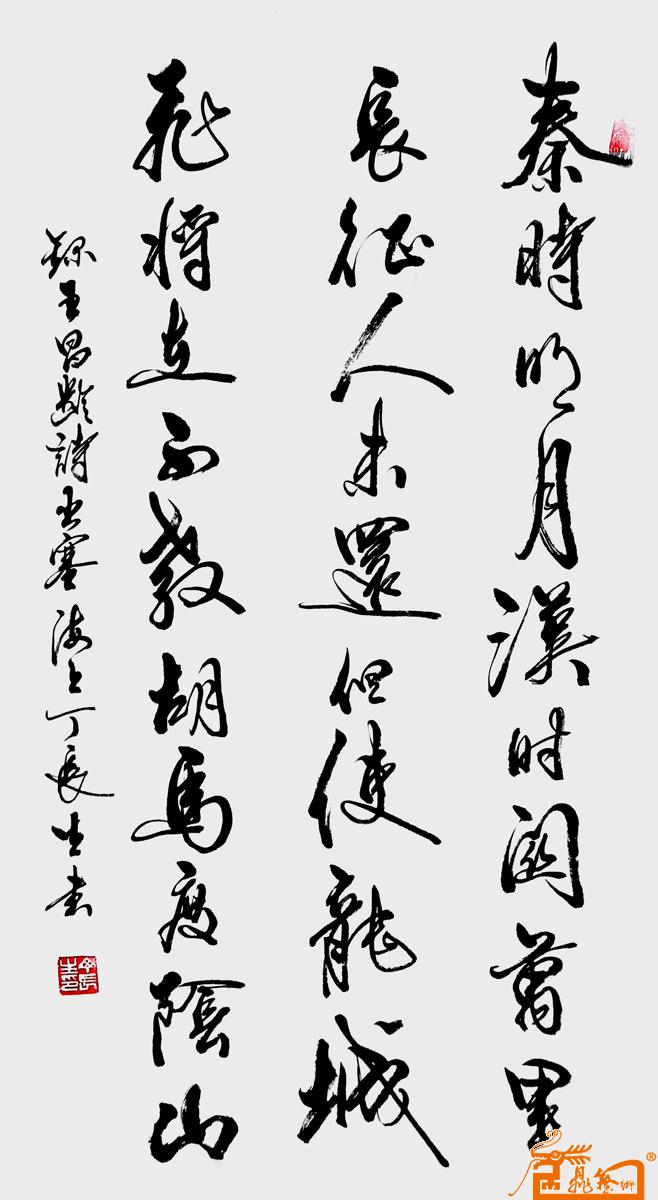 秦時明月漢时關萬里
長征人未還但使龍城
飛將在不教胡馬度陰山
録王昌齡詩出塞海上丁長生書